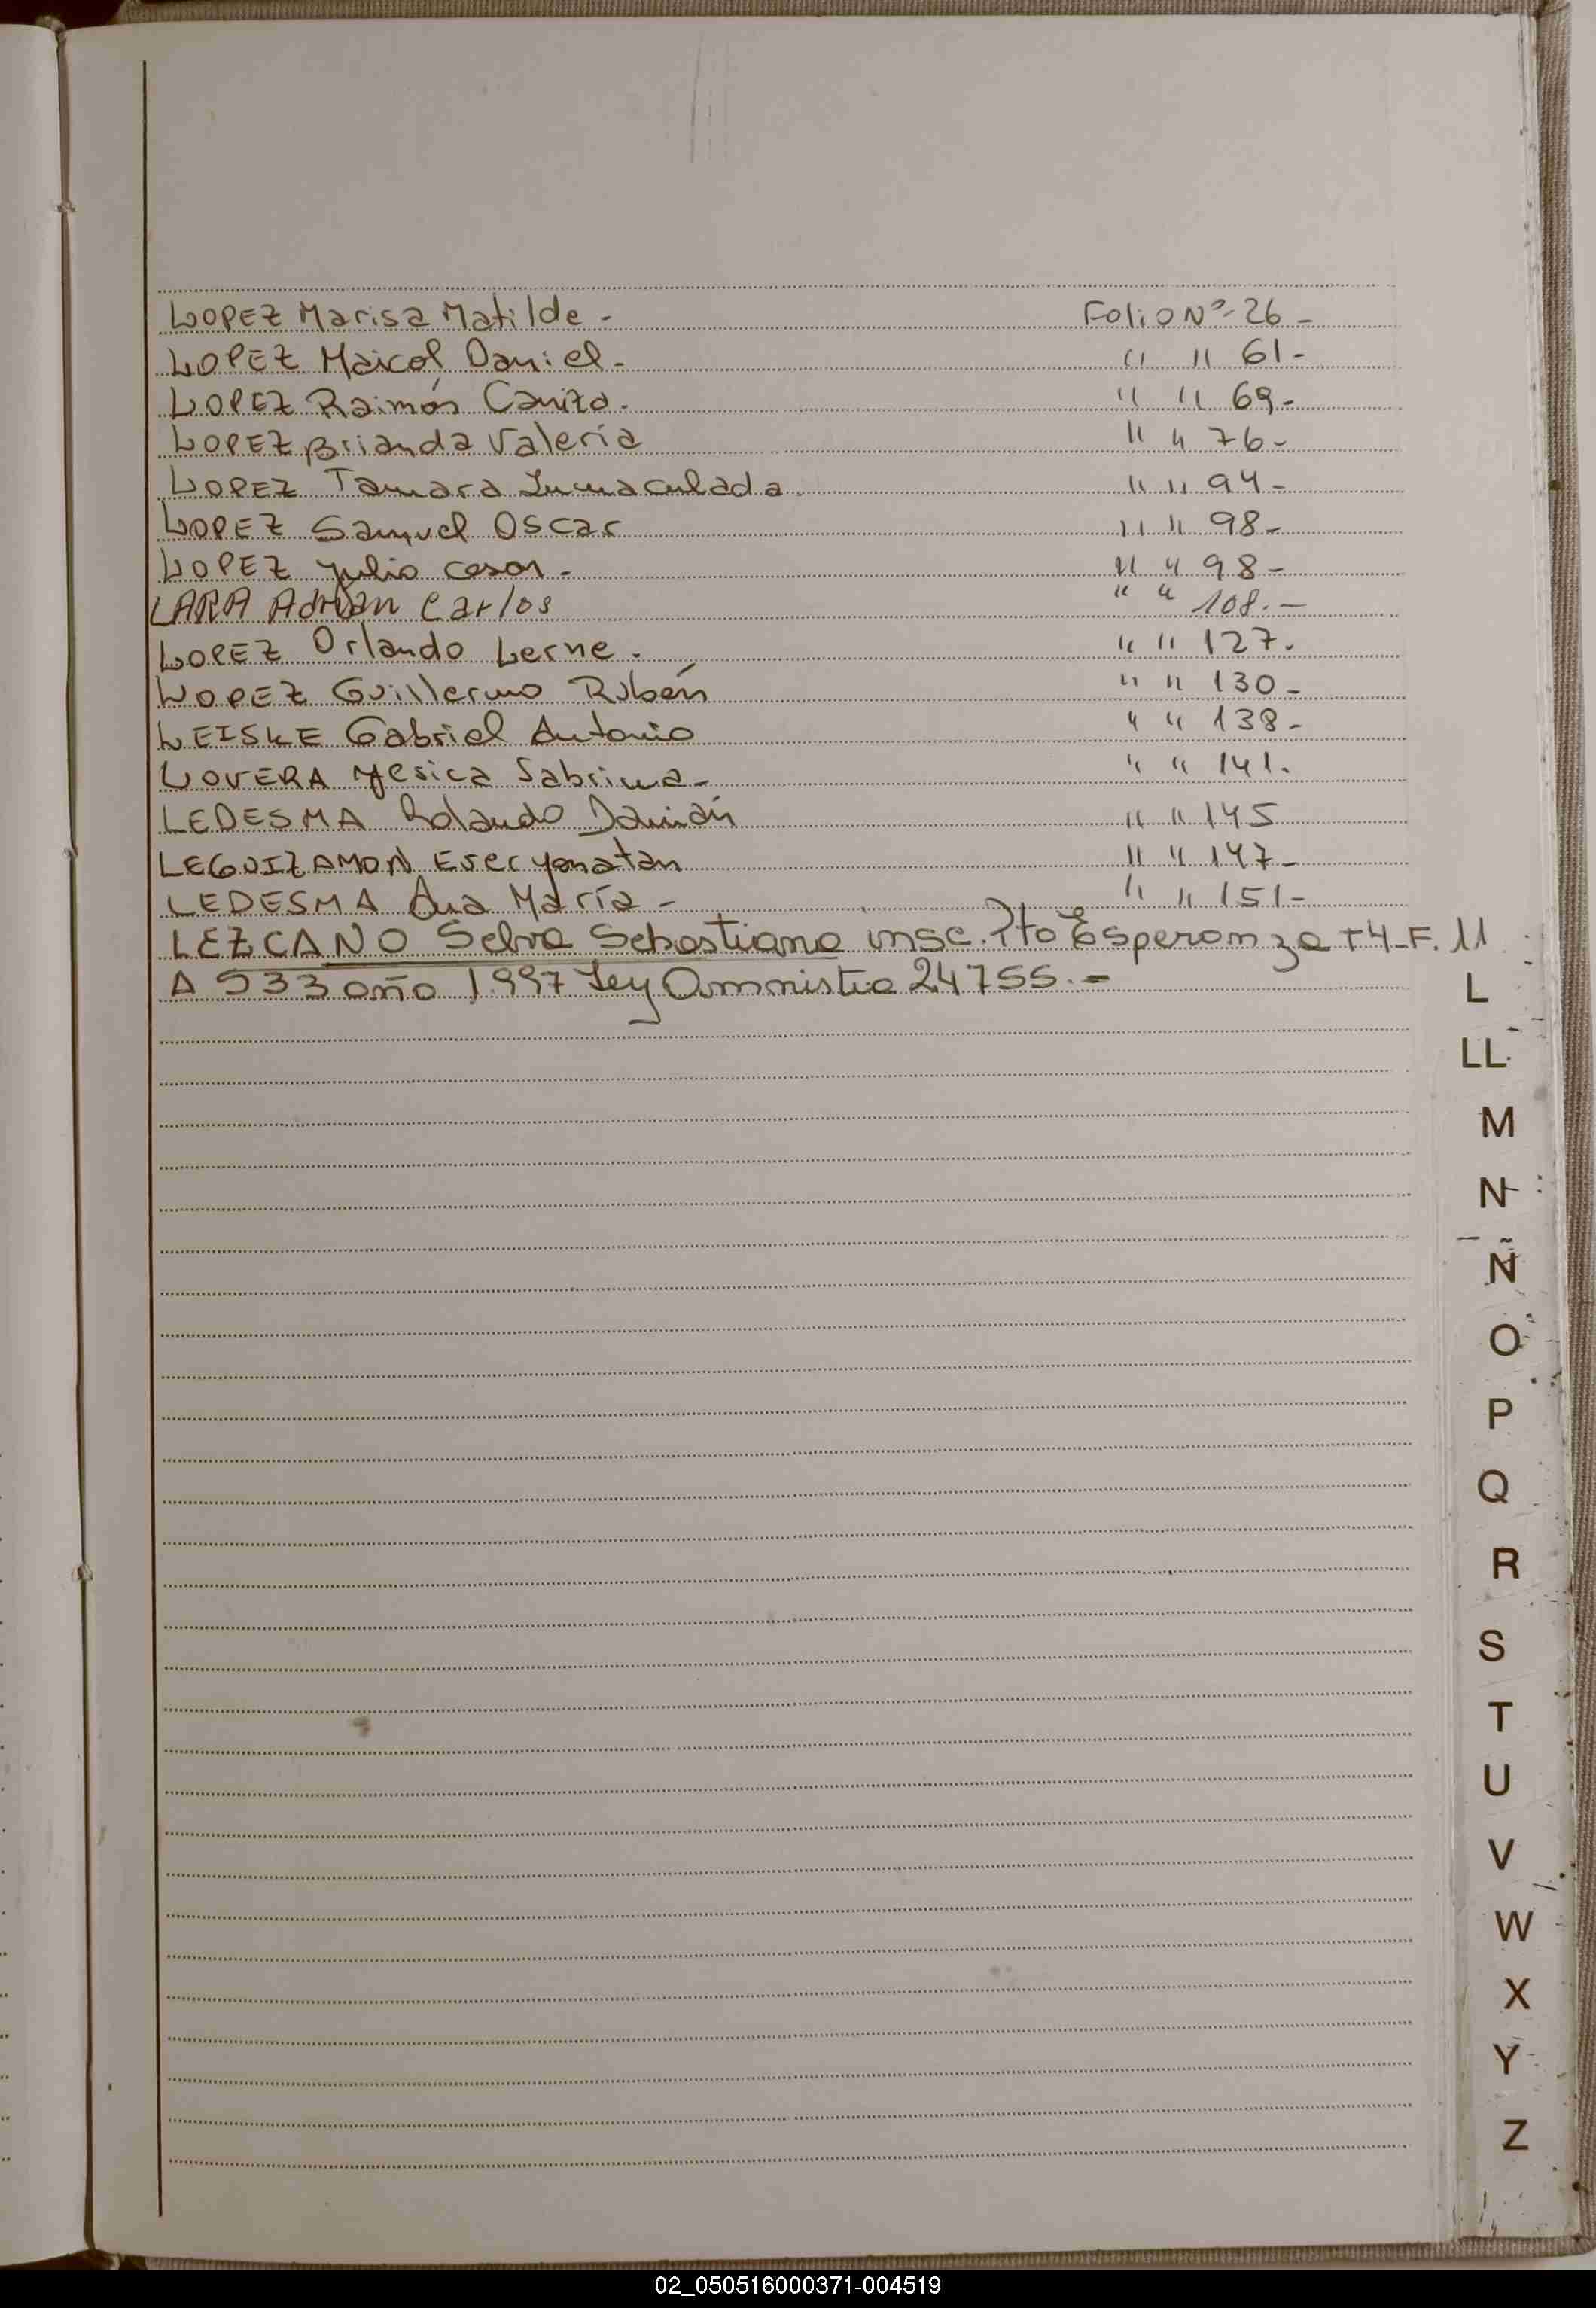 LOPEZ Marisa Matilde - Folio Nº- 26 -
LOPEZ Maicol Daniel - " " 61-
LOPEZ Raimón Canizo. " " 69-
LOPEZ Brianda Valeria " " 76-
LOPEZ Tamara Inmaculada. " " 94-
LOPEZ Samuel Oscar " " 98-
LOPEZ Julio Cesar - " " 98-
LARA Adrián Carlos " " 108.-
LOPEZ Orlando Lerne. " " 127.
LOPEZ Guillermo Rubén " " 130-
LEISKE Gabriel Antonio " " 138-
LOVERA Yesica Sabrina - " " 141.
LEDESMA Rolando Damián " " 145
LEGUIZAMON Eser Yonatan " " 147-
LEDESMA Ana María - " " 151-
LEZCANO Selva Sebastiana insc. Pto Esperanza T4-F. 11
A 533 año 1.997 Ley Amnistia 24755.-
L
LL
M
N
Ñ
O
P
Q
R
S
T
U
V
W
X
Y
Z
02_050516000371-004519